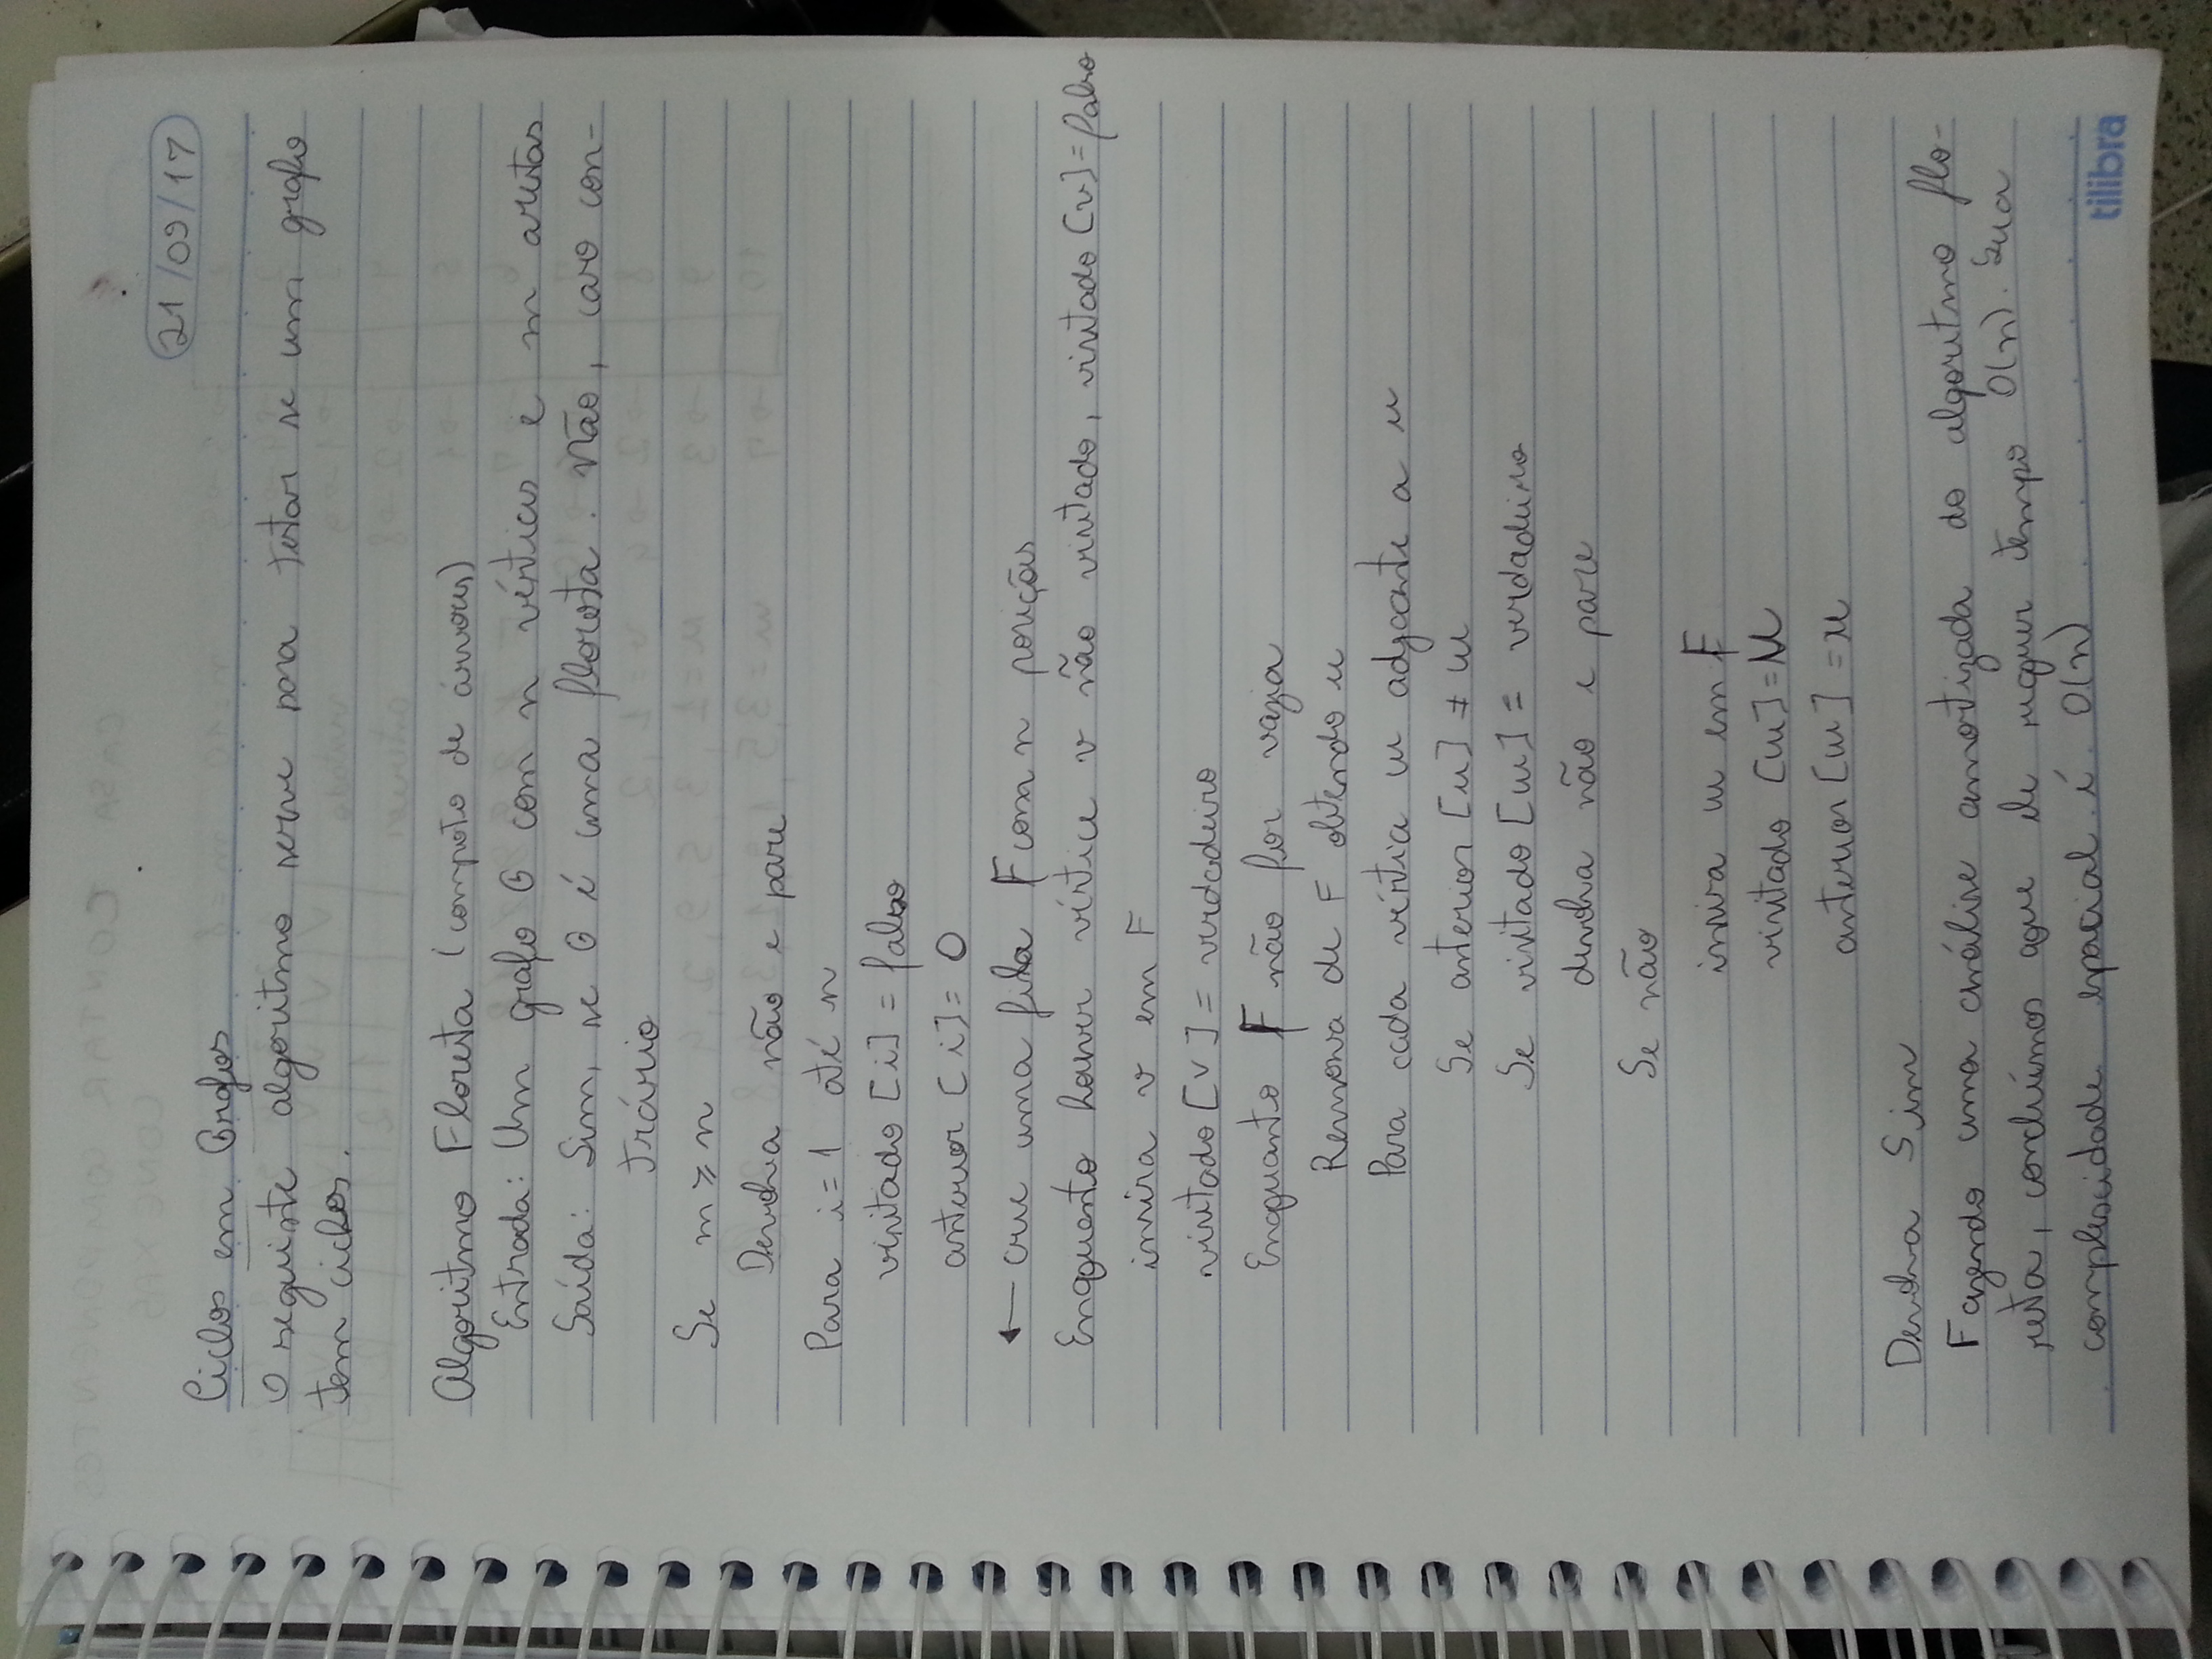 21/09/17
Ciclos em Grafos
O seguinte algoritmo serve para testar se um grafo
tem ciclos.
Algoritmo Floresta (composto de árvores)
Entrada: Um grafo G com n vértices e m arestas
Saída: Sim, se G é uma floresta. Não, caso con-
trário
Se m ≥ n
Devolva não e pare
Para i=1 até n
visitado [i] = falso
anterior [i] = 0
← crie uma fila F com n posições
Enquanto houver vértice v não visitado, visitado [v] = falso
insira v em F
visitado [v] = verdadeiro
Enquanto F não for vazia
Remova de F obtendo u
Para cada vértice w adjacente a u
Se anterior [u] ≠ w
Se visitado [w] = verdadeiro
devolva não e pare
Se não
insira w em F
visitado [w] =
anterior [w] = u
Devolva Sim
Fazendo uma análise amortizada do algoritmo flo-
resta, concluímos que ele requer tempo O(n). Sua
complexidade espacial é O(n)
tilibra